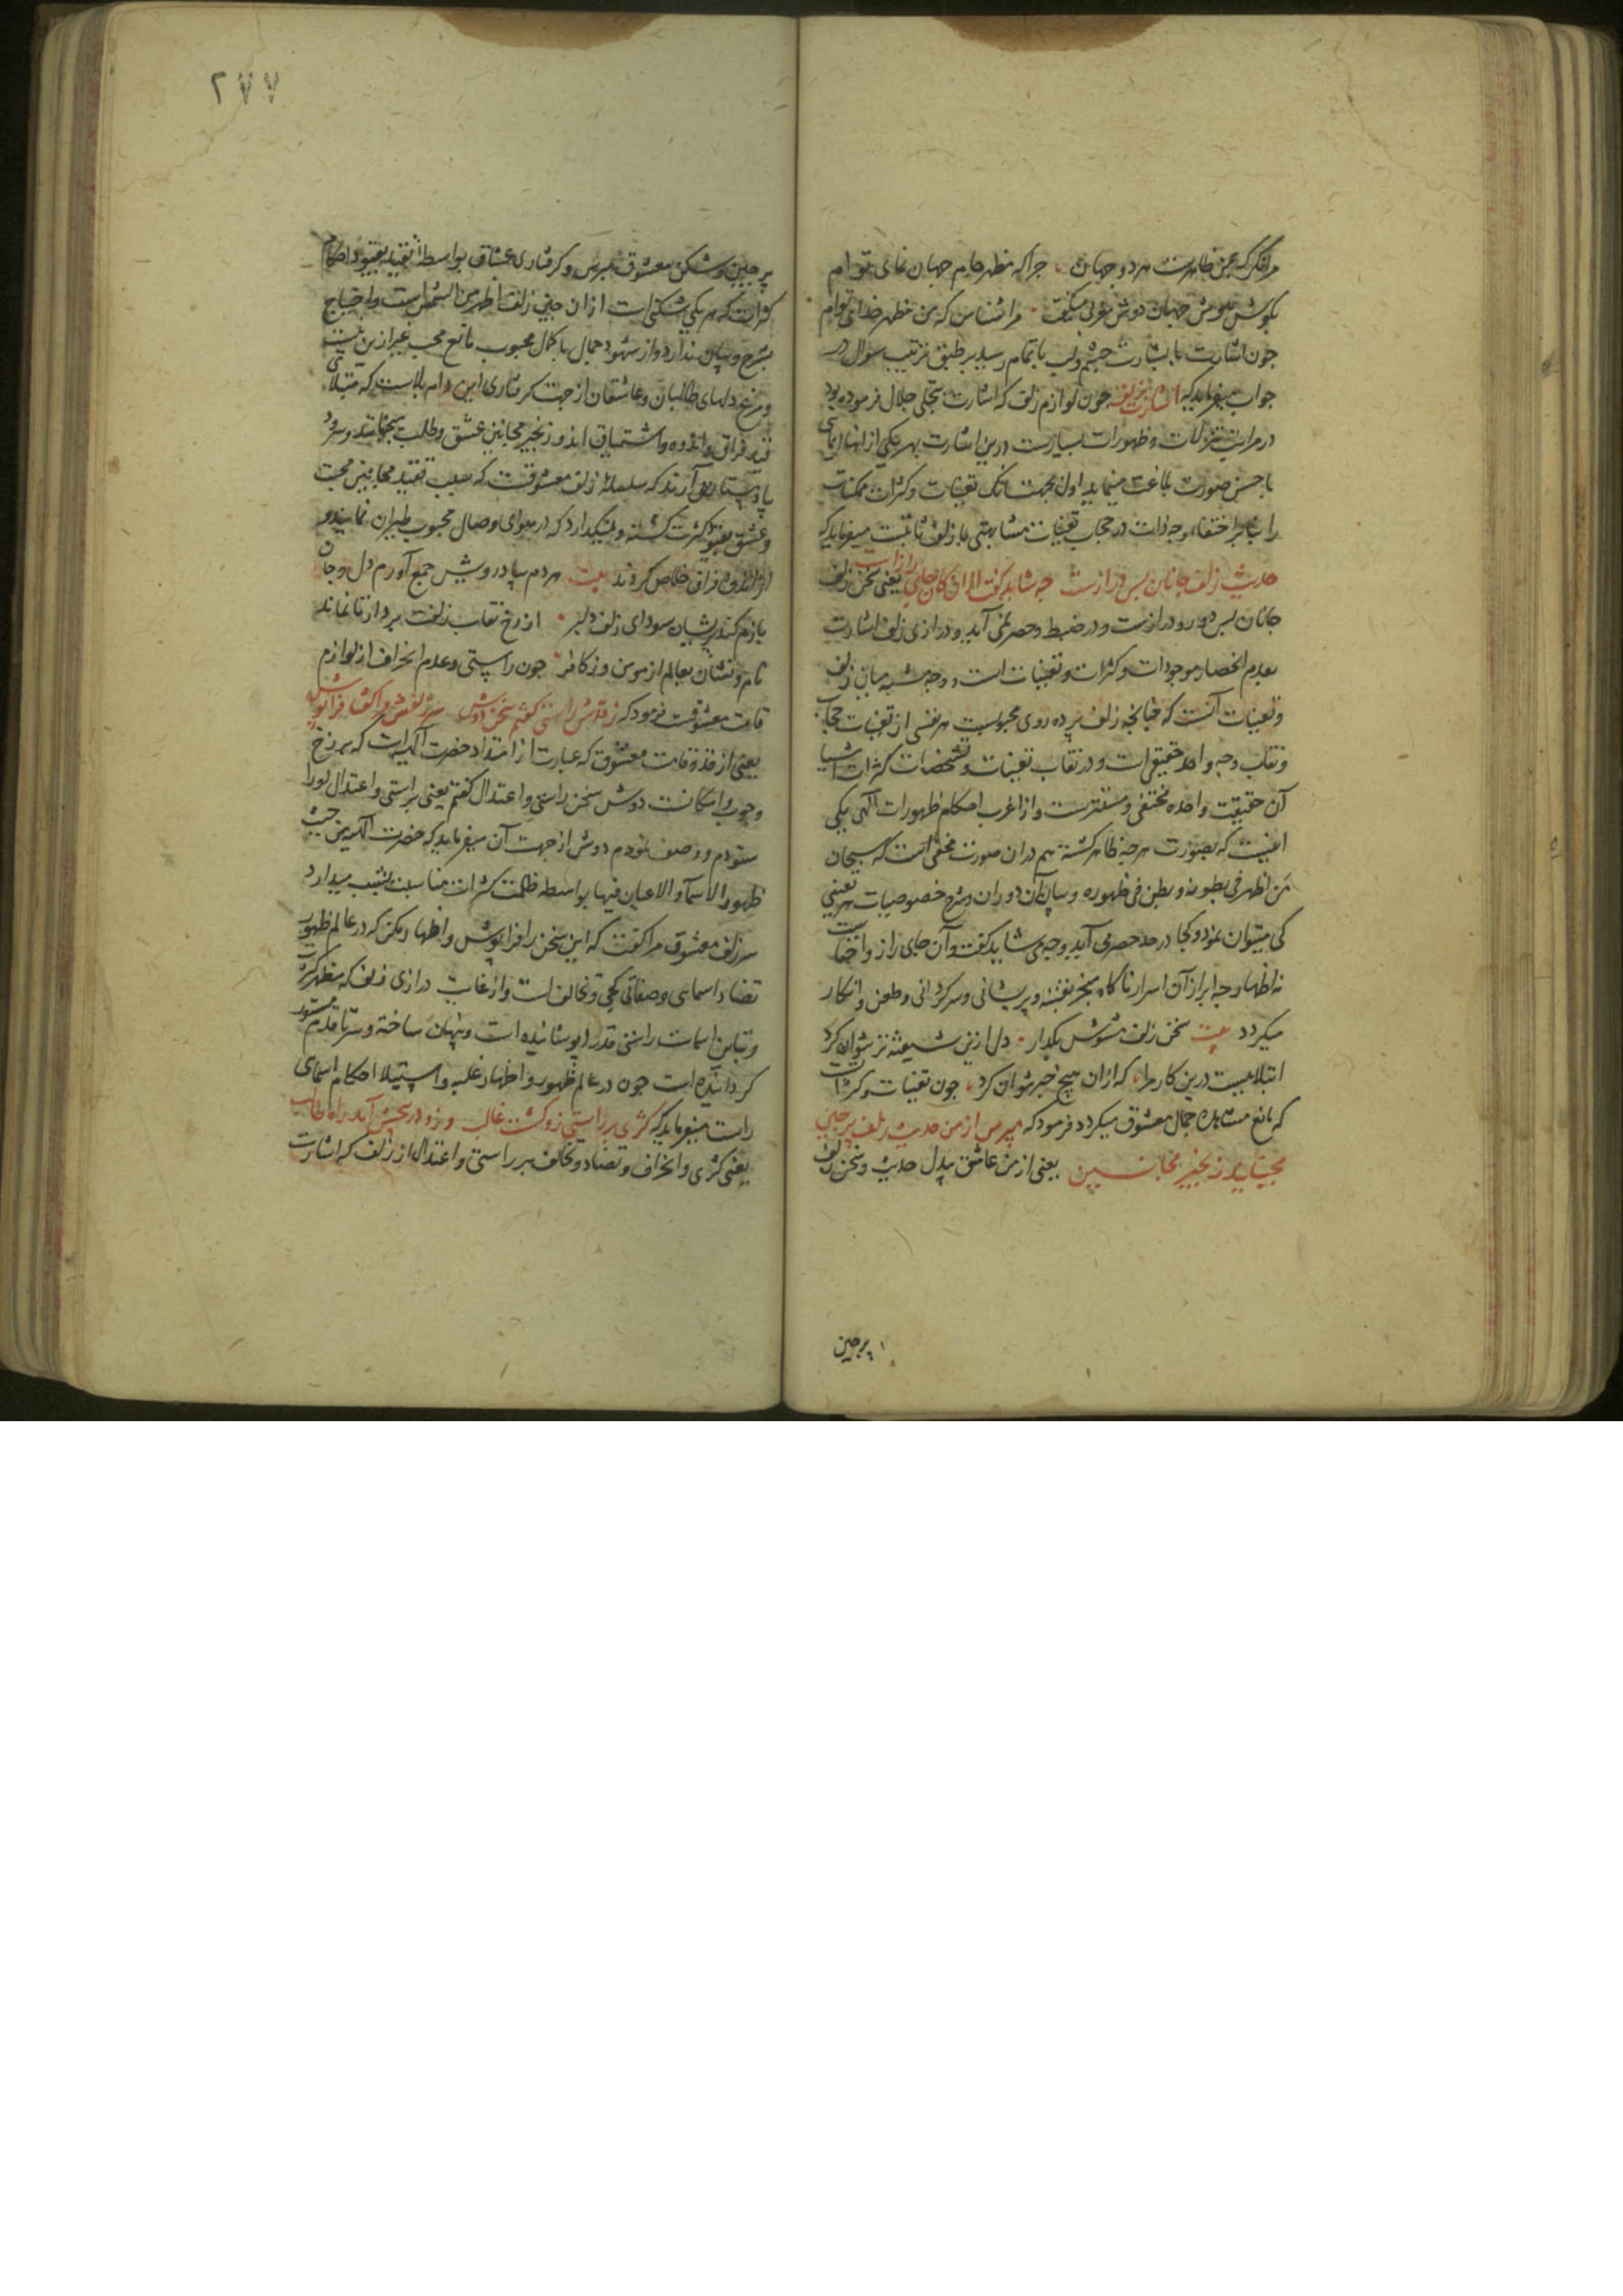 مرا نگر که بمن ظاهرست هر دو جهان چرا که مظهر جام جهان نمای توام
بگوش هوش جهان دوش مغربی میگفت مرا شناس که من مظهر خدای توام
چون اشارت با بشارت چشم و لب باتمام رسید بر طبق ترتیب سوال در
جواب میفرماید که اشارت بزلف چون لوازم زلف که اشارت بتجلی جلال فرموده بود
در مراتب تنزلات و ظهورات بسیارست درین اشارت بهر یکی از انها ایمائی
باحسن صورت بلاغت مینماید اول بجهت انک تعینات و کثرات ممکنات
را بنا بر اختفاء وجه ذات در حجاب تعینات مشابهتی با زلف ثابتست میفرماید که
حدیث زلف جانان بس درازست چه شاید گفت ازان کان جای رازست یعنی سخن زلف
جانان بس دور و درازست و در ضبط و حصر نمی آید و درازی زلف اشارت
بعدم انحصار موجودات و کثرات و تعینات است و وجه شبه میان زلف
و تعینات آنست که چنانچه زلف پرده روی محبوبست هر نفسی از تعینات حجاب
و نقاب وجه واحد حقیقی است و در نقاب تعینات و تشخصات کثرات اشیا
آن حقیقت واحده مختفی و مستترست و از اغرب احکام ظهورات الهی یکی
اینست که بصورت هر چه ظاهر گشته هم دران صورت مخفی است که سبحان
من اظهر فی بطونه و بطن فی ظهوره و بیان آن دوران و شرح خصوصیات هر تعینی
کی میتوان نمود و کجا در حد حصر می آید و چه می شاید گفت و آن جای راز و اخفاست
نه اظهار چه ابراز آن اسرار ناگاه بجر بفتنه و پریشانی و سرگردانی و طعن و انکار
میگردد بیت سخن زلف مشوش بگذار دل ازین شیفته تر نتوان کرد
ابتلاییست درین کار مرا که ازان هیچ خبر نتوان کرد چون تعینات و کثرات
که مانع مشاهده جمال معشوق میگردد فرمود که مپرس از من حدیث زلف پرچین
مجنبانید زنجیر مجانین یعنی از من عاشق بیدل حدیث و سخن زلف
پرچین
۲۷۷
پرچین و شکن معشوق مپرس و گرفتاری عشاق بواسطه تقید بقیود احکام
کثرات که هر یکی شکنی است ازان چین زلف اظهر من الشمس است و احتیاج
بشرح و بیان ندارد و از شهود جمال با کمال محبوب مانع محب غیر ازین نیست
و مرغ دلهای طالبان و عاشقان از جهت گرفتاری این دام بلاست که مبتلای
قید فراق و اندوه و اشتیاق اند و زنجیر مجانین عشق و طلب مجنبانید و سرود
یاد مستان آرند که سلسله زلف معشوقست که سبب تقید مجانین محبت
و عشق بقیود کثرت گشته و نمیگذارد که در هوای وصال محبوب طیران نمایند و
از اندوه فراق خلاص گردند بیت هر دم بپا درویش جمع آورم دل و جان
بازم کند پریشان سودای زلف دلبر از رخ نقاب زلفت بردار تا نماند
نام و نشان بعالم از مومن و ز کافر چون راستی و عدم انحراف از لوازم
قامت معشوقست فرمود که ز قدش راستی گفتم سخن دوش سر زلفش مرا گفتا فراپوش
یعنی از قد و قامت معشوق که عبارت از امتداد حضرت الهیه است که برزخ
وجوب و امکانست دوش سخن راستی و اعتدال گفتم یعنی براستی و اعتدال او را
ستودم و وصف نمودم دوش از جهت آن میفرماید که حضرت الهیه من حیث
ظهور الاسماء و الاعیان فیها بواسطه ظلمت کثرات مناسبت بشب میدارد
سر زلف معشوق مرا گفت که این سخن را فراپوش و اظهار مکن که در عالم ظهور
تضاد اسمایی و صفاتی کجی و تخالف است و از غایت درازی زلف که مظهر کثرت
و تباین اسماست راستی قد را پوشانیده است و پنهان ساخته و سر تا قدم مستور
گردانیده است چون در عالم ظهور و اظهار غلبه و استیلا احکام اسمای
راست میفرماید که کژی بر راستی زو گشت غالب وزو در پیچش آمد راه طالب
یعنی کژی و انحراف و تضاد و تخالف بر راستی و اعتدال از زلف که اشارت